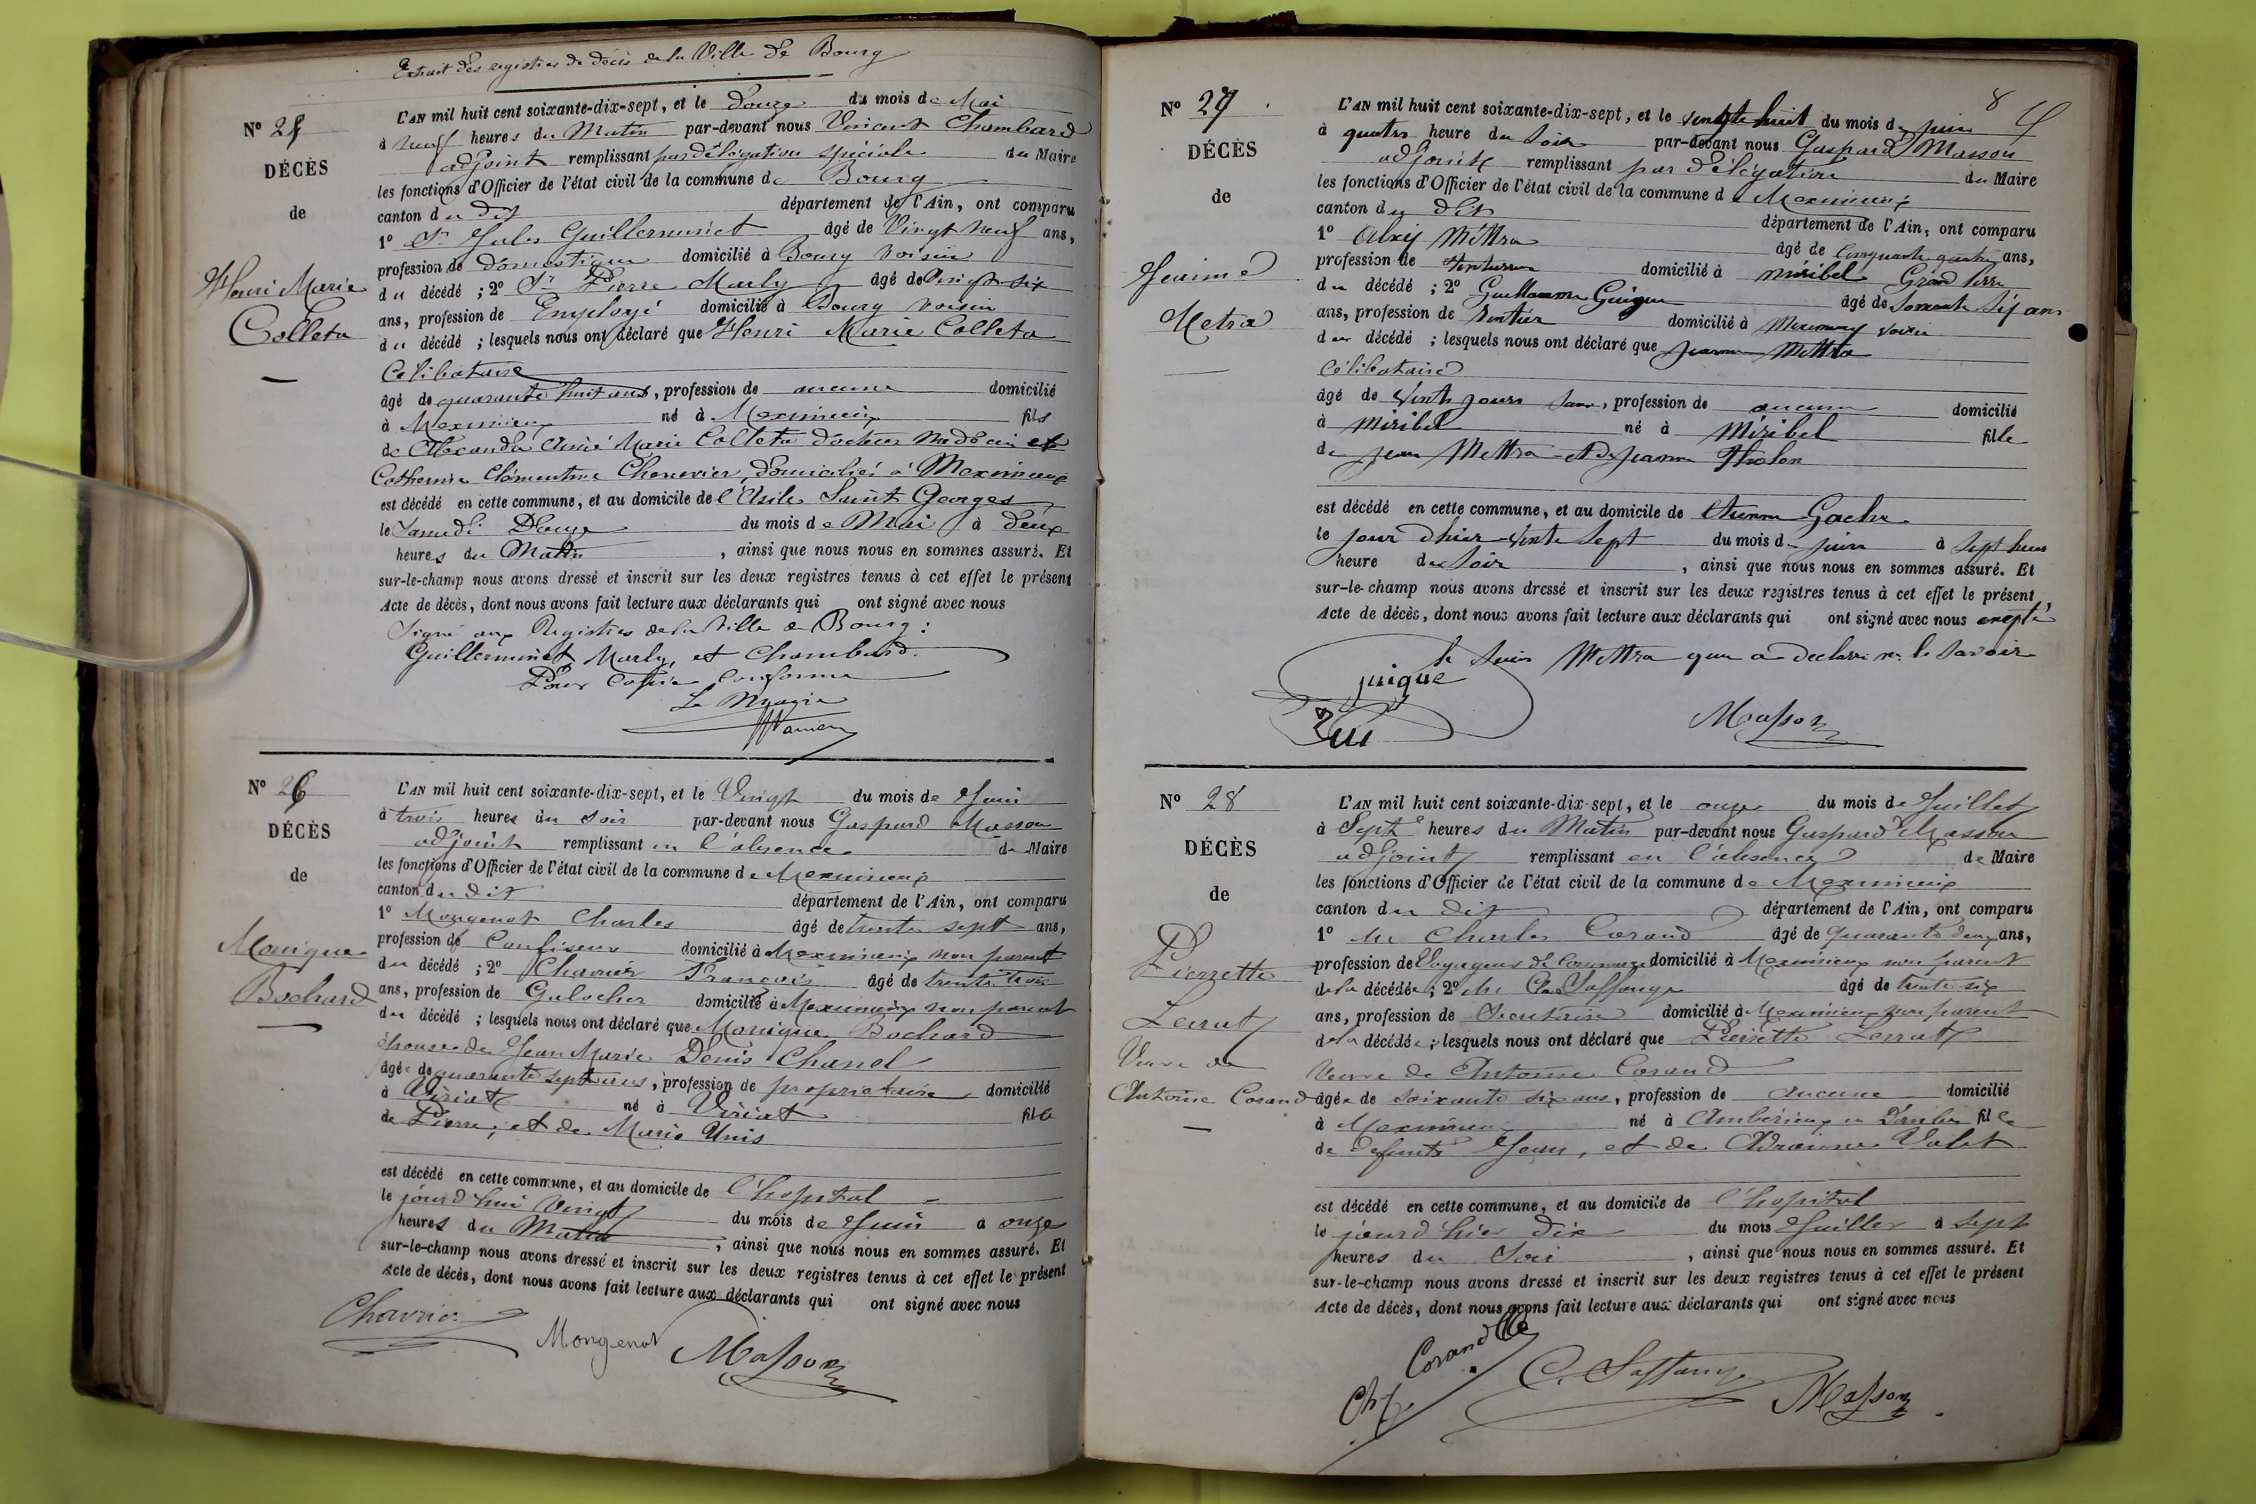 Extrait des registres de décès de la Ville de Bourg
N° 25
DÉCÈS
de
Henri Marie
Colleta
L'AN mil huit cent soixante-dix-sept, et le Douze du mois de Mai
à neuf heures du Matin par-devant nous Vincent Chambard
adjoint remplissant par délégation spéciale du Maire
les fonctions d'Officier de l'état civil de la commune de Bourg
canton du dit département de l'Ain, ont comparu
1° Sr Jules Guillerminet âgé de Vingt neuf ans,
profession de Domestique domicilié à Bourg voisin
du décédé ; 2° Sr Pierre Marly âgé de Vingt six
ans, profession de Employé domicilié à Bourg voisin
du décédé ; lesquels nous ont déclaré que Henri Marie Colleta
Célibataire
âgé de quarante huit ans, profession de aucune domicilié
à Meximieux né à Meximieux fils
de Alexandre Aimé Marie Colleta docteur médecin et
Catherine Clémentine Chenevier, domiciliés à Meximieux
est décédé en cette commune, et au domicile de l'Asile Saint Georges
le Samedi Douze du mois de Mai à deux
heures du Matin , ainsi que nous nous en sommes assuré. Et
sur-le-champ nous avons dressé et inscrit sur les deux registres tenus à cet effet le présent
Acte de décès, dont nous avons fait lecture aux déclarants qui ont signé avec nous
Signé aux Registres de la Ville de Bourg :
Guillerminet, Marly, et Chambard.
Pour Copie Conforme
Le Maire
N° 26
DÉCÈS
de
Monique
Bochard
L'AN mil huit cent soixante-dix-sept, et le Vingt du mois de Juin
à trois heures du soir par-devant nous Gaspard Masson
adjoint remplissant en l'absence du Maire
les fonctions d'Officier de l'état civil de la commune de Meximieux
canton du dit département de l'Ain, ont comparu
1° Mongenot Charles âgé de trente sept ans,
profession de Confiseur domicilié à Meximieux non parent
du décédé ; 2° Chavrier François âgé de trente trois
ans, profession de Galocher domicilié à Meximieux non parent
du décédé ; lesquels nous ont déclaré que Monique Bochard
épouse de Jean Marie Denis Chanel
âgée de quarante sept ans, profession de propriétaire domicilié
à Viriat né à Viriat fille
de Pierre, et de Marie Unis
est décédé en cette commune, et au domicile de l'hopital
le jourd'hui Vingt du mois de Juin à onze
heures du Matin , ainsi que nous nous en sommes assuré. Et
sur-le-champ nous avons dressé et inscrit sur les deux registres tenus à cet effet le présent
Acte de décès, dont nous avons fait lecture aux déclarants qui ont signé avec nous
Chavrier Mongenot Masson
8
N° 27
DÉCÈS
de
Jeanne
Metra
L'AN mil huit cent soixante-dix-sept, et le vingt huit du mois de juin
à quatre heure du soir par-devant nous Gaspard Masson
adjoint remplissant par délégation du Maire
les fonctions d'Officier de l'état civil de la commune de Meximieux
canton du dit département de l'Ain, ont comparu
1° Alexis Mettra âgé de cinquante quatre ans,
profession de domicilié à Miribel Grand Père
du décédé ; 2° Guillaume Guigue âgé de soixante six ans
ans, profession de Rentier domicilié à Meximieux voisin
du décédé ; lesquels nous ont déclaré que Jeanne Mettra
Célibataire
âgé de Vinte jours sans, profession de aucune domicilié
à Miribel né à Miribel fille
de Jean Mettra et de Jeanne Tholon
est décédé en cette commune, et au domicile de Etienne Gache
le jour d'hier Vinte Sept du mois de juin à sept heur
heure du Soir , ainsi que nous nous en sommes assuré. Et
sur-le-champ nous avons dressé et inscrit sur les deux registres tenus à cet effet le présent
Acte de décès, dont nous avons fait lecture aux déclarants qui ont signé avec nous excepté
le Sieur Mettra que a declaré ne le savoir
guigue
Masson
N° 28
DÉCÈS
de
Pierrette
Lerrat
Veuve de
Antoine Corand
L'AN mil huit cent soixante-dix-sept, et le onze du mois de Juillet
à Sept heures du Matin par-devant nous Gaspard Masson
adjoint remplissant en l'absence de Maire
les fonctions d'Officier de l'état civil de la commune de Meximieux
canton du dit département de l'Ain, ont comparu
1° Mr Charles Corand âgé de quarante deux ans,
profession de Voyageur de Commerce domicilié à Meximieux non parent
de la décédée ; 2° Mr Cl. Saffange âgé de trente six
ans, profession de Secretaire domicilié à Meximieux non parent
de la décédée ; lesquels nous ont déclaré que Pierrette Lerrat
Veuve de Antoine Corand
âgée de soixante six ans, profession de aucune domicilié
à Meximieux né à Ambérieux en Dombes fille
de défunts Jean, et de Adrienne Valet
est décédé en cette commune, et au domicile de l'hopital
le jourd'hier Dix du mois Juillet à sept
heures du Soir , ainsi que nous nous en sommes assuré. Et
sur-le-champ nous avons dressé et inscrit sur les deux registres tenus à cet effet le présent
Acte de décès, dont nous avons fait lecture aux déclarants qui ont signé avec nous
Ch. Corand C. Saffange Masson